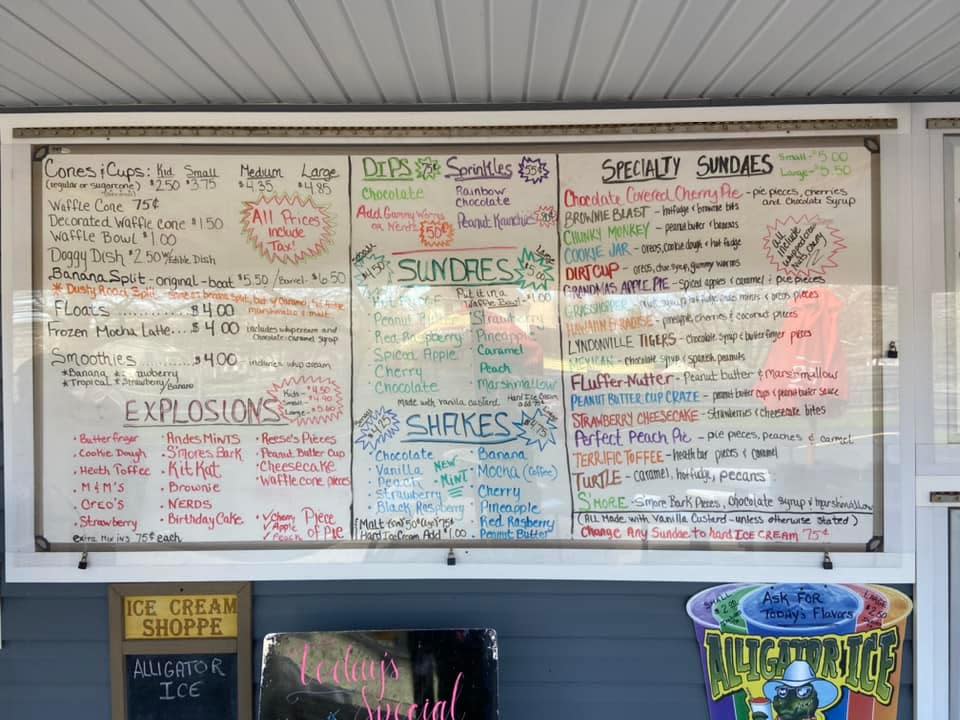 Cones & Cups: Kid Small Medium Large
(regular or sugarcone) $2.50 $3.75 $4.35 $4.85
Waffle Cone 75¢
Decorated Waffle cone $1.50
Waffle Bowl $1.00
Doggy Dish $2.50 w/Edible Dish
All Prices
Include
Tax!
Banana Split - original - boat $5.50 / Barrel - $6.50
* Dusty Road Split - same as banana split, but w/ caramel, hot fudge
marshmallo & malt
Floats ........ $4.00
Frozen Mocha Latte... $4.00 includes whipcream and
chocolate-caramel syrup
Smoothies ......... $4.00 includes whip cream
* Banana * Strawberry
* Tropical * Strawberry/Banana
EXPLOSIONS
Kids - $4.50
Small - $4.90
Large - $5.60
• Butterfinger
• Cookie Dough
• Heath Toffee
• M & M's
• Oreo's
• Strawberry
• Andes Mints
• S'mores Bark
• Kit Kat
• Brownie
• NERDS
• Birthday Cake
• Reese's Pieces
• Peanut Butter Cup
• Cheesecake
• Waffle cone pieces
✓Cherry
✓Apple
✓Peach
Piece
of Pie
extra mix ins 75¢ each
DIPS 75¢
Chocolate
Add Gummy Worms
or Nerds 50¢
Sprinkles 55¢
Rainbow
chocolate
Peanut Krunchie
SUNDAES
Small
$4.50
Large
$5.00
Put it in a
Waffle Bowl - $1.00
Hot Fudge
Peanut Butter
Red Raspberry
Spiced Apple
Cherry
Chocolate
Strawberry
Pineapple
Caramel
Peach
Marshmallow
made with vanilla custard
Hard Ice Cream
add 75¢
SHAKES
$4.25
$4.75
• Chocolate
• Vanilla
• Peach
• Strawberry
• Black Raspberry
NEW
MINT
• Banana
• Mocha (coffee)
• Cherry
• Pineapple
• Red Raspberry
• Peanut Butter
Hard Ice Cream Add $1.00
SPECIALTY SUNDAES Small - $5.00
Large - $5.50
Chocolate Covered Cherry Pie - pie pieces, cherries
and Chocolate Syrup
BROWNIE BLAST - hot fudge & brownie bits
CHUNKY MONKEY - peanut butter & bananas
COOKIE JAR - oreos, cookie dough & hot fudge
DIRT CUP - oreos, choc syrup, gummy worms
GRANDMA'S APPLE PIE - spiced apples & caramel & pie pieces
GRASSHOPPER
HAWAIIN PARADISE - pineapple, cherries & coconut pieces
LYNDONVILLE TIGERS - chocolate syrup & butterfinger pieces
MEXICAN - chocolate syrup & spanish peanuts
FLUFFER-NUTTER - Peanut butter & Marshmallow
PEANUT BUTTER CUP CRAZE - peanut butter cups & peanut butter sauce
STRAWBERRY CHEESECAKE - strawberries & cheesecake bites
Perfect Peach Pie - pie pieces, peaches & carmel
TERRIFIC TOFFEE - heath bar pieces & caramel
TURTLE - caramel, hot fudge, pecans
S'MORE - S'more Bark Pieces, chocolate syrup & marshmallow
(All Made with Vanilla Custard - unless otherwise stated)
Change Any Sundae to hard ICE CREAM 75¢
all
include
whipped cream
nuts, cherry
ICE CREAM
SHOPPE
ALLIGATOR
ICE
Today's
Special
SMALL
LARGE
ASK FOR
TODAY'S FLAVORS
ALLIGATOR ICE